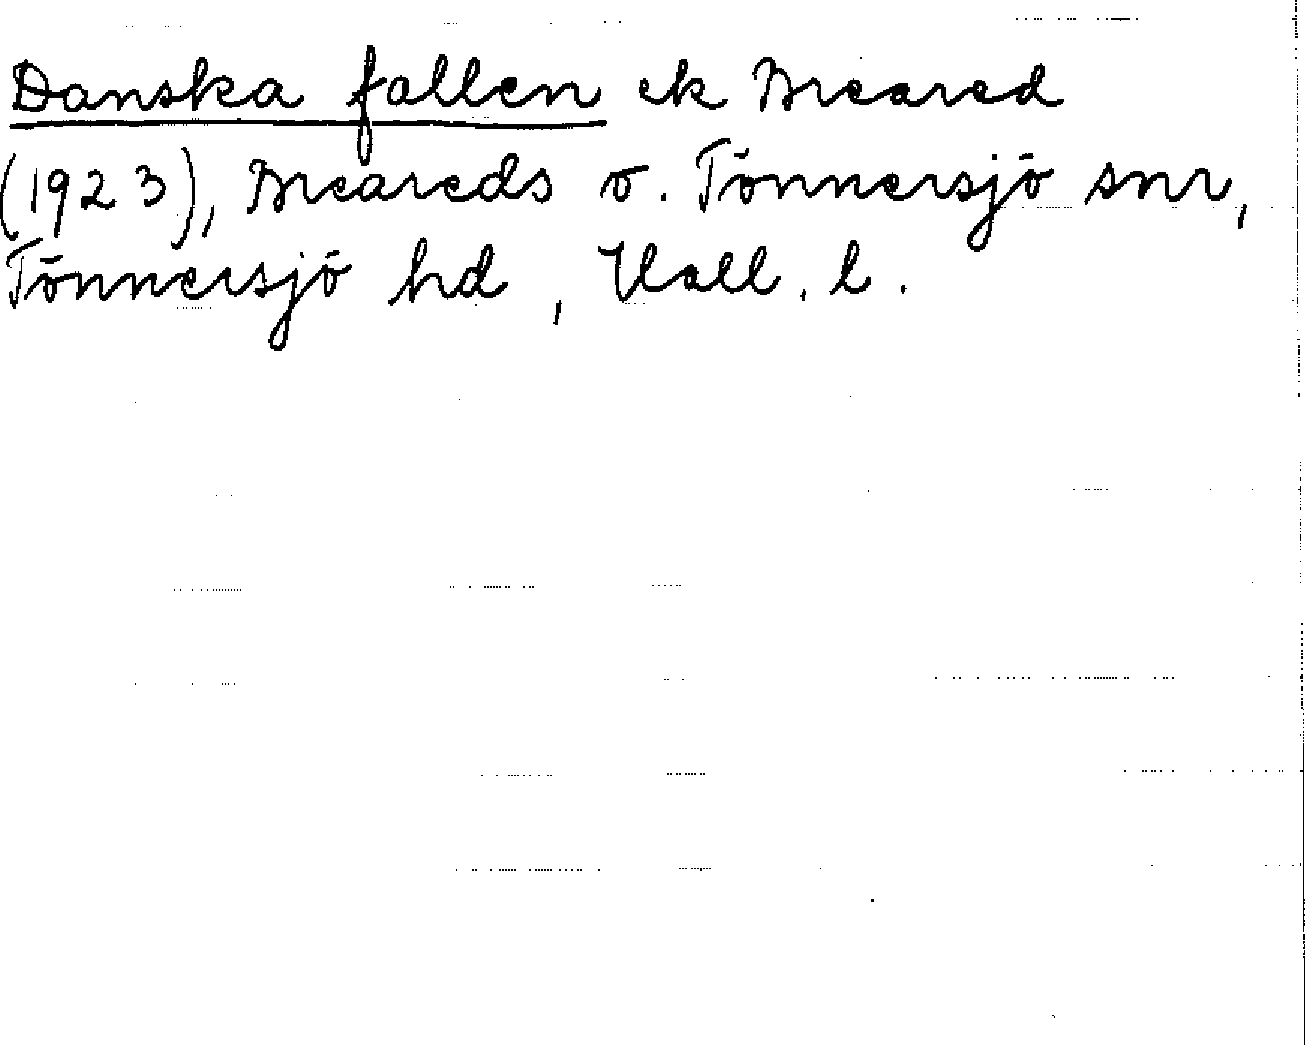 Danska fallen ek Breared
(1923), Breareds o. Tönnersjö snr,
Tönnersjö hd, Hall. l.